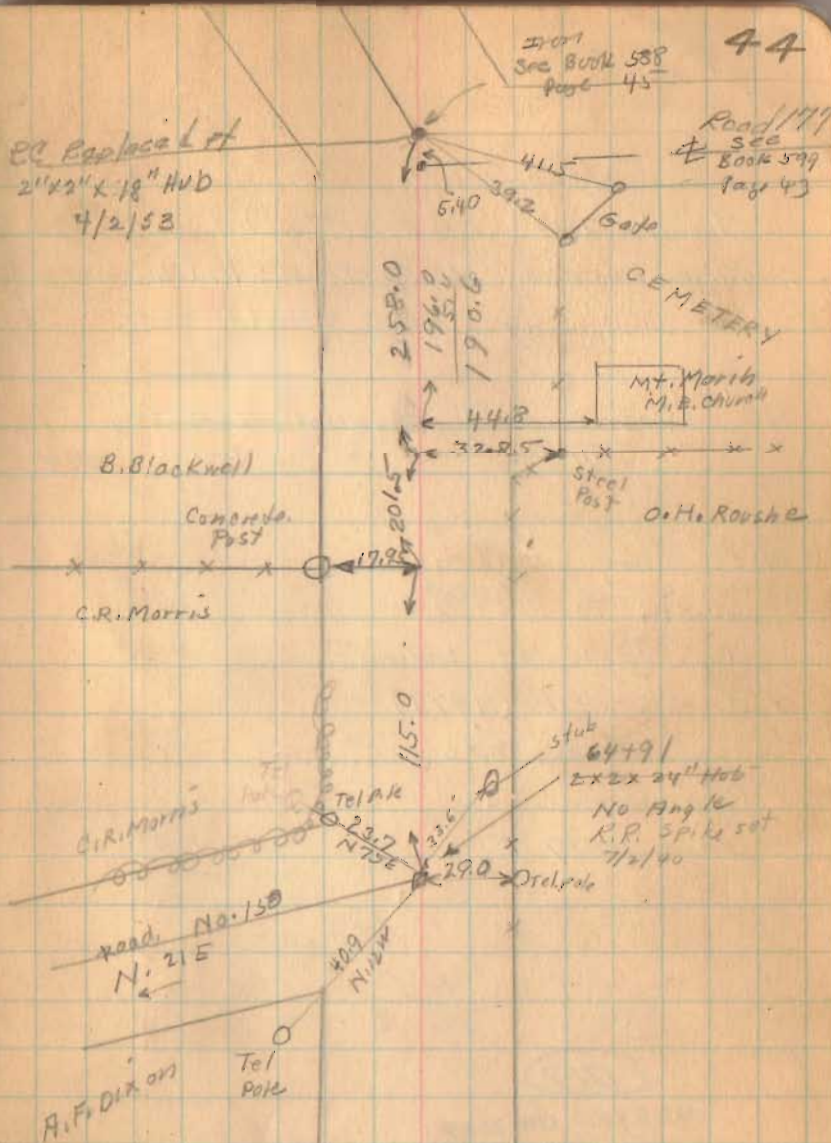 44
Iron
See Book 588
Page 45
Road 177
See
Book 599
Page 43
PC Replaced pt
2"x2"x18" HUD
4/2/53
41.5
39.2
5.40
Gate
CEMETERY
258.0
196.0
5.4
190.6
Mt. Moriah
M.E. Church
44.8
32.8.5
Steel
Post
O.H. Roushe
B.Blackwell
201.5
Concrete.
Post
17.95
C.R.Morris
115.0
Stub
64+91
2x2x24" Hob
No Angle
R.R. Spike set
7/2/40
Tel
Tel Pk
C.R.Morris
23.7
N75E
33.6
29.0
Tel.pole
Road, No.
N. 21E
40.9
N.12W
Tel
Pole
A.F. Dixon